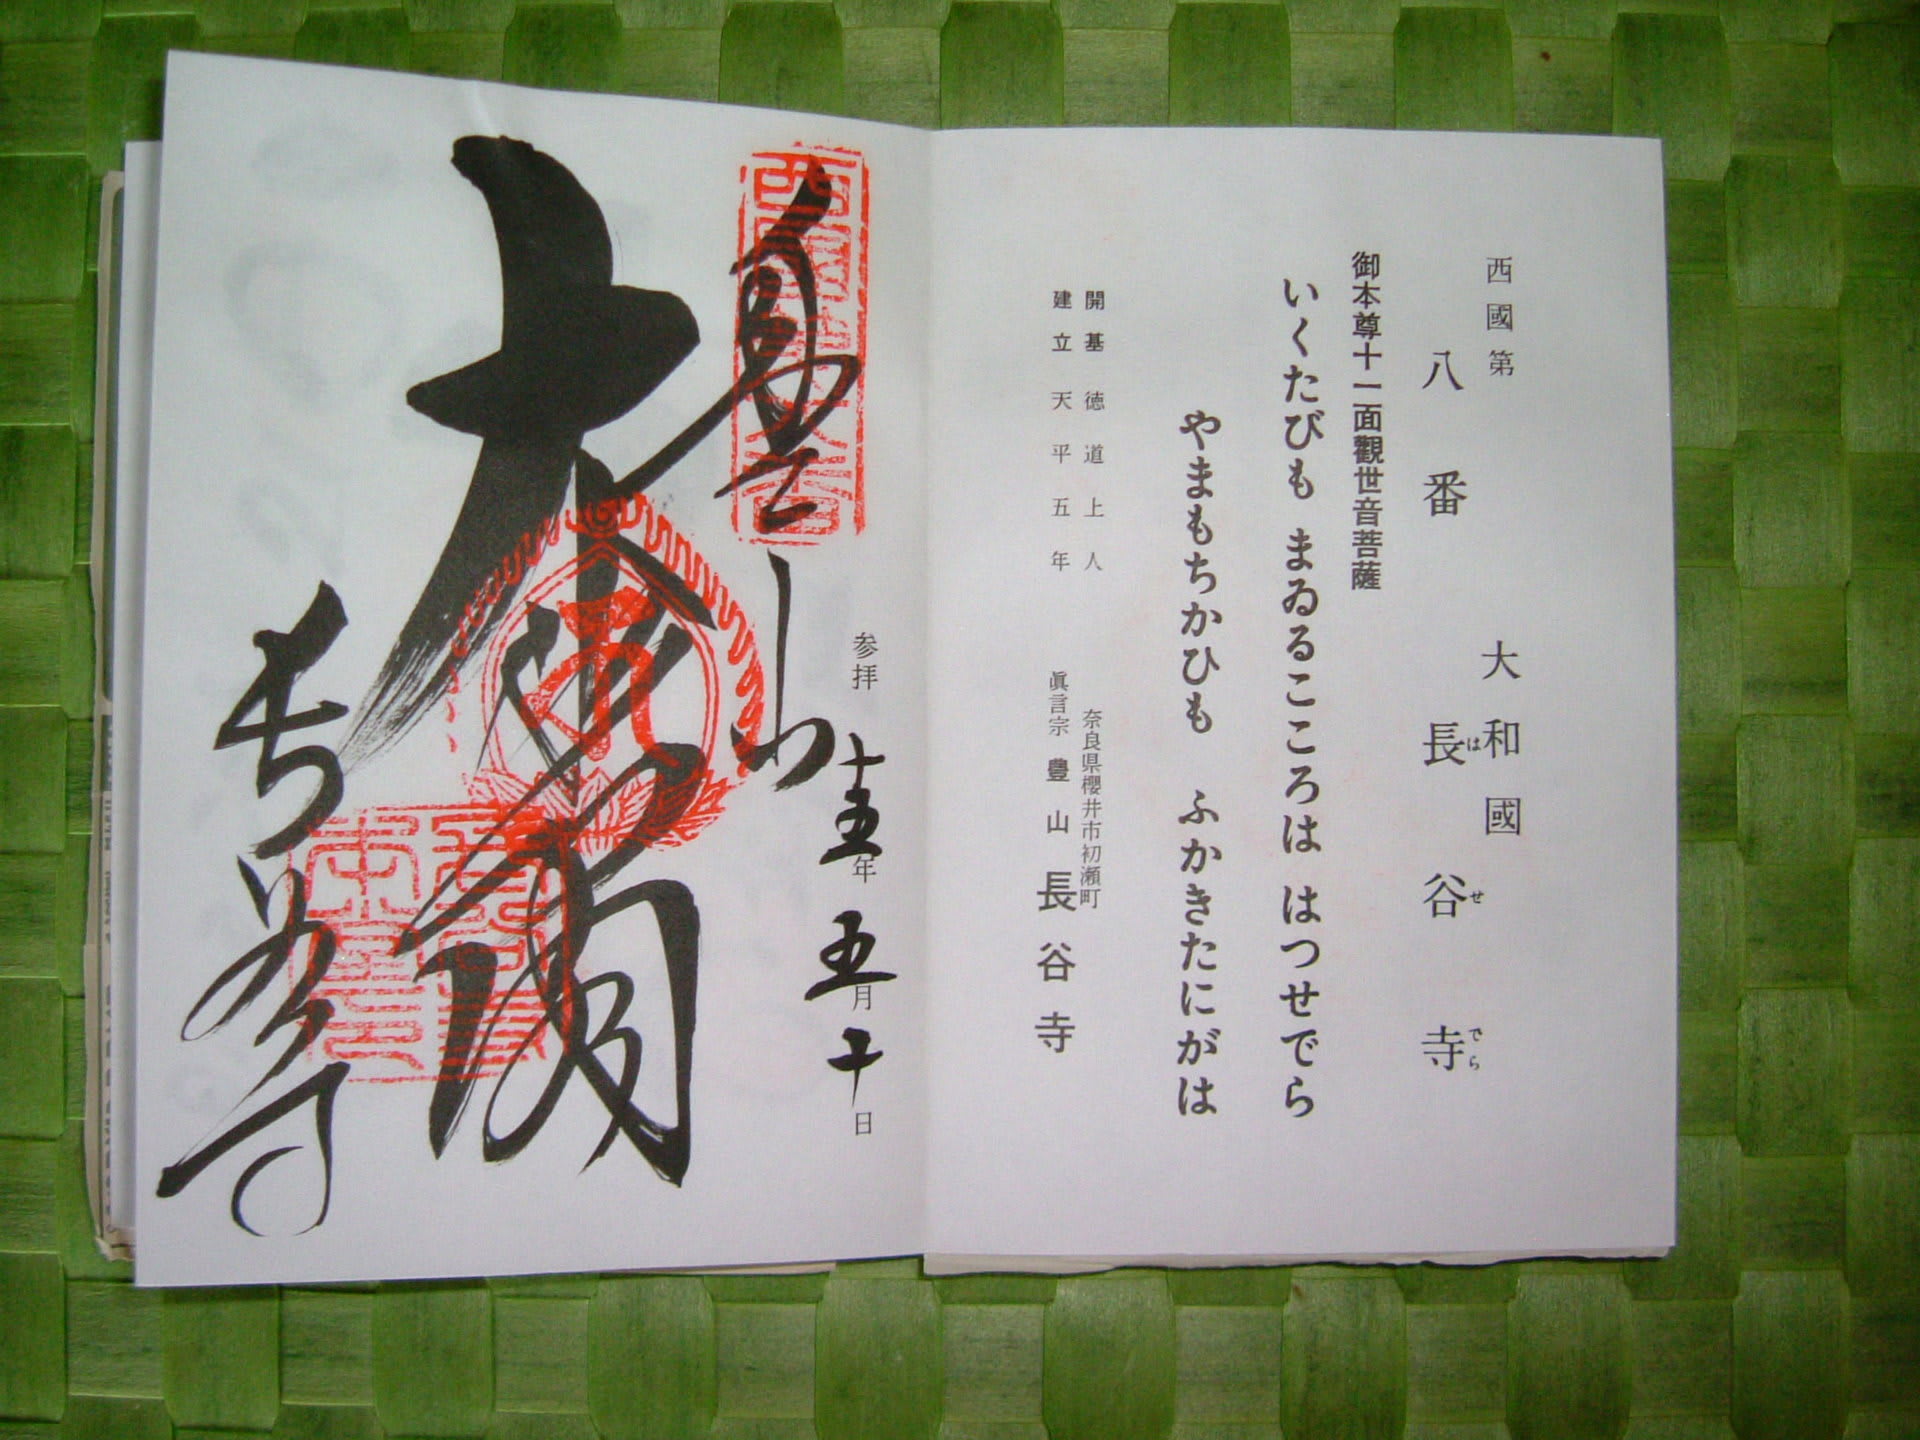 西國第
八番
大和國
長谷寺
は
せ
でら
御本尊十一面觀世音菩薩
いくたびも まゐるこころは はつせでら
やまもちかひも ふかきたにがは
開基 徳道上人
建立 天平五年
奈良県櫻井市初瀬町
眞言宗 豊山 長谷寺
参拝 十五年 五月 十日
豊山
大悲閣
長谷寺